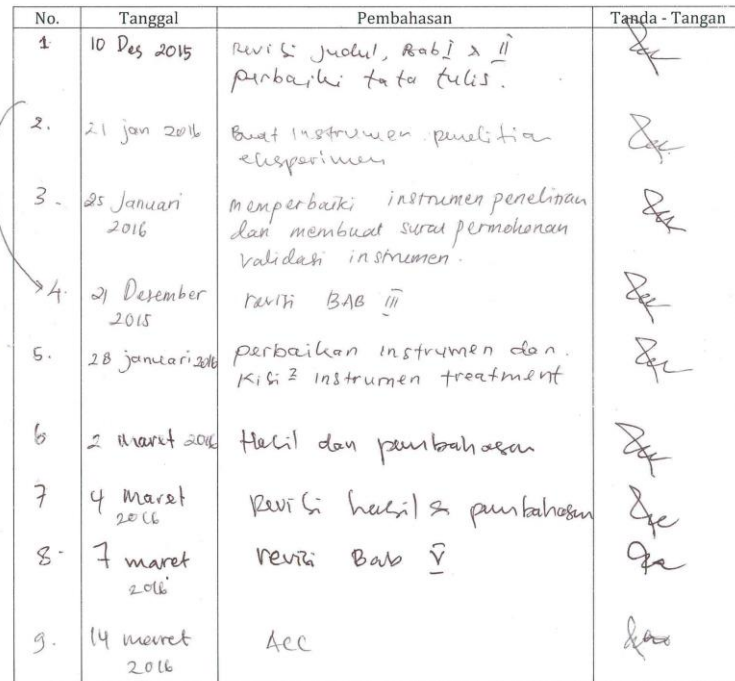 No. Tanggal Pembahasan Tanda - Tangan
1. 10 Des 2015 Revisi judul, Bab I & II
perbaiki tata tulis.
2. 21 jan 2016 Buat instrumen penelitian
eksperimen
3. 25 Januari memperbaiki instrumen penelitian
2016 dan membuat surat permohonan
validasi instrumen.
4. 21 Desember revisi BAB III
2015
5. 28 januari 2016 perbaikan instrumen dan
Kisi2 instrumen treatment
6 2 maret 2016 Hasil dan pembahasan
7 4 Maret Revisi hasil & pembahasan
2016
8. 7 maret revisi Bab V
2016
9. 14 maret ACC
2016